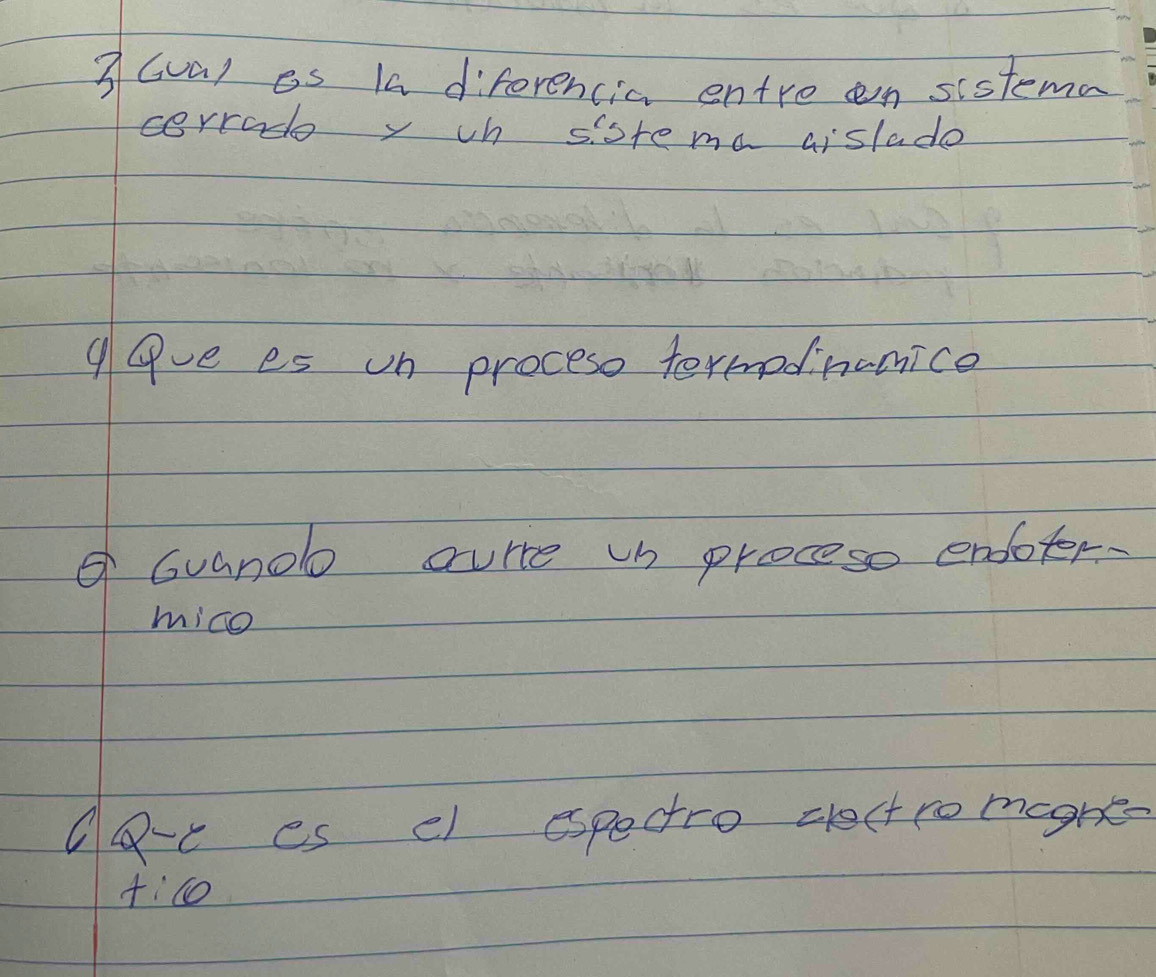 3 Cual es la diferencia entre un sistema
cerrado y un sistema aislado
4 Que es un proceso termodinamico
5 Cuando ocurre un proceso endoter-
mico
6 Que es el espectro electromagne-
tico